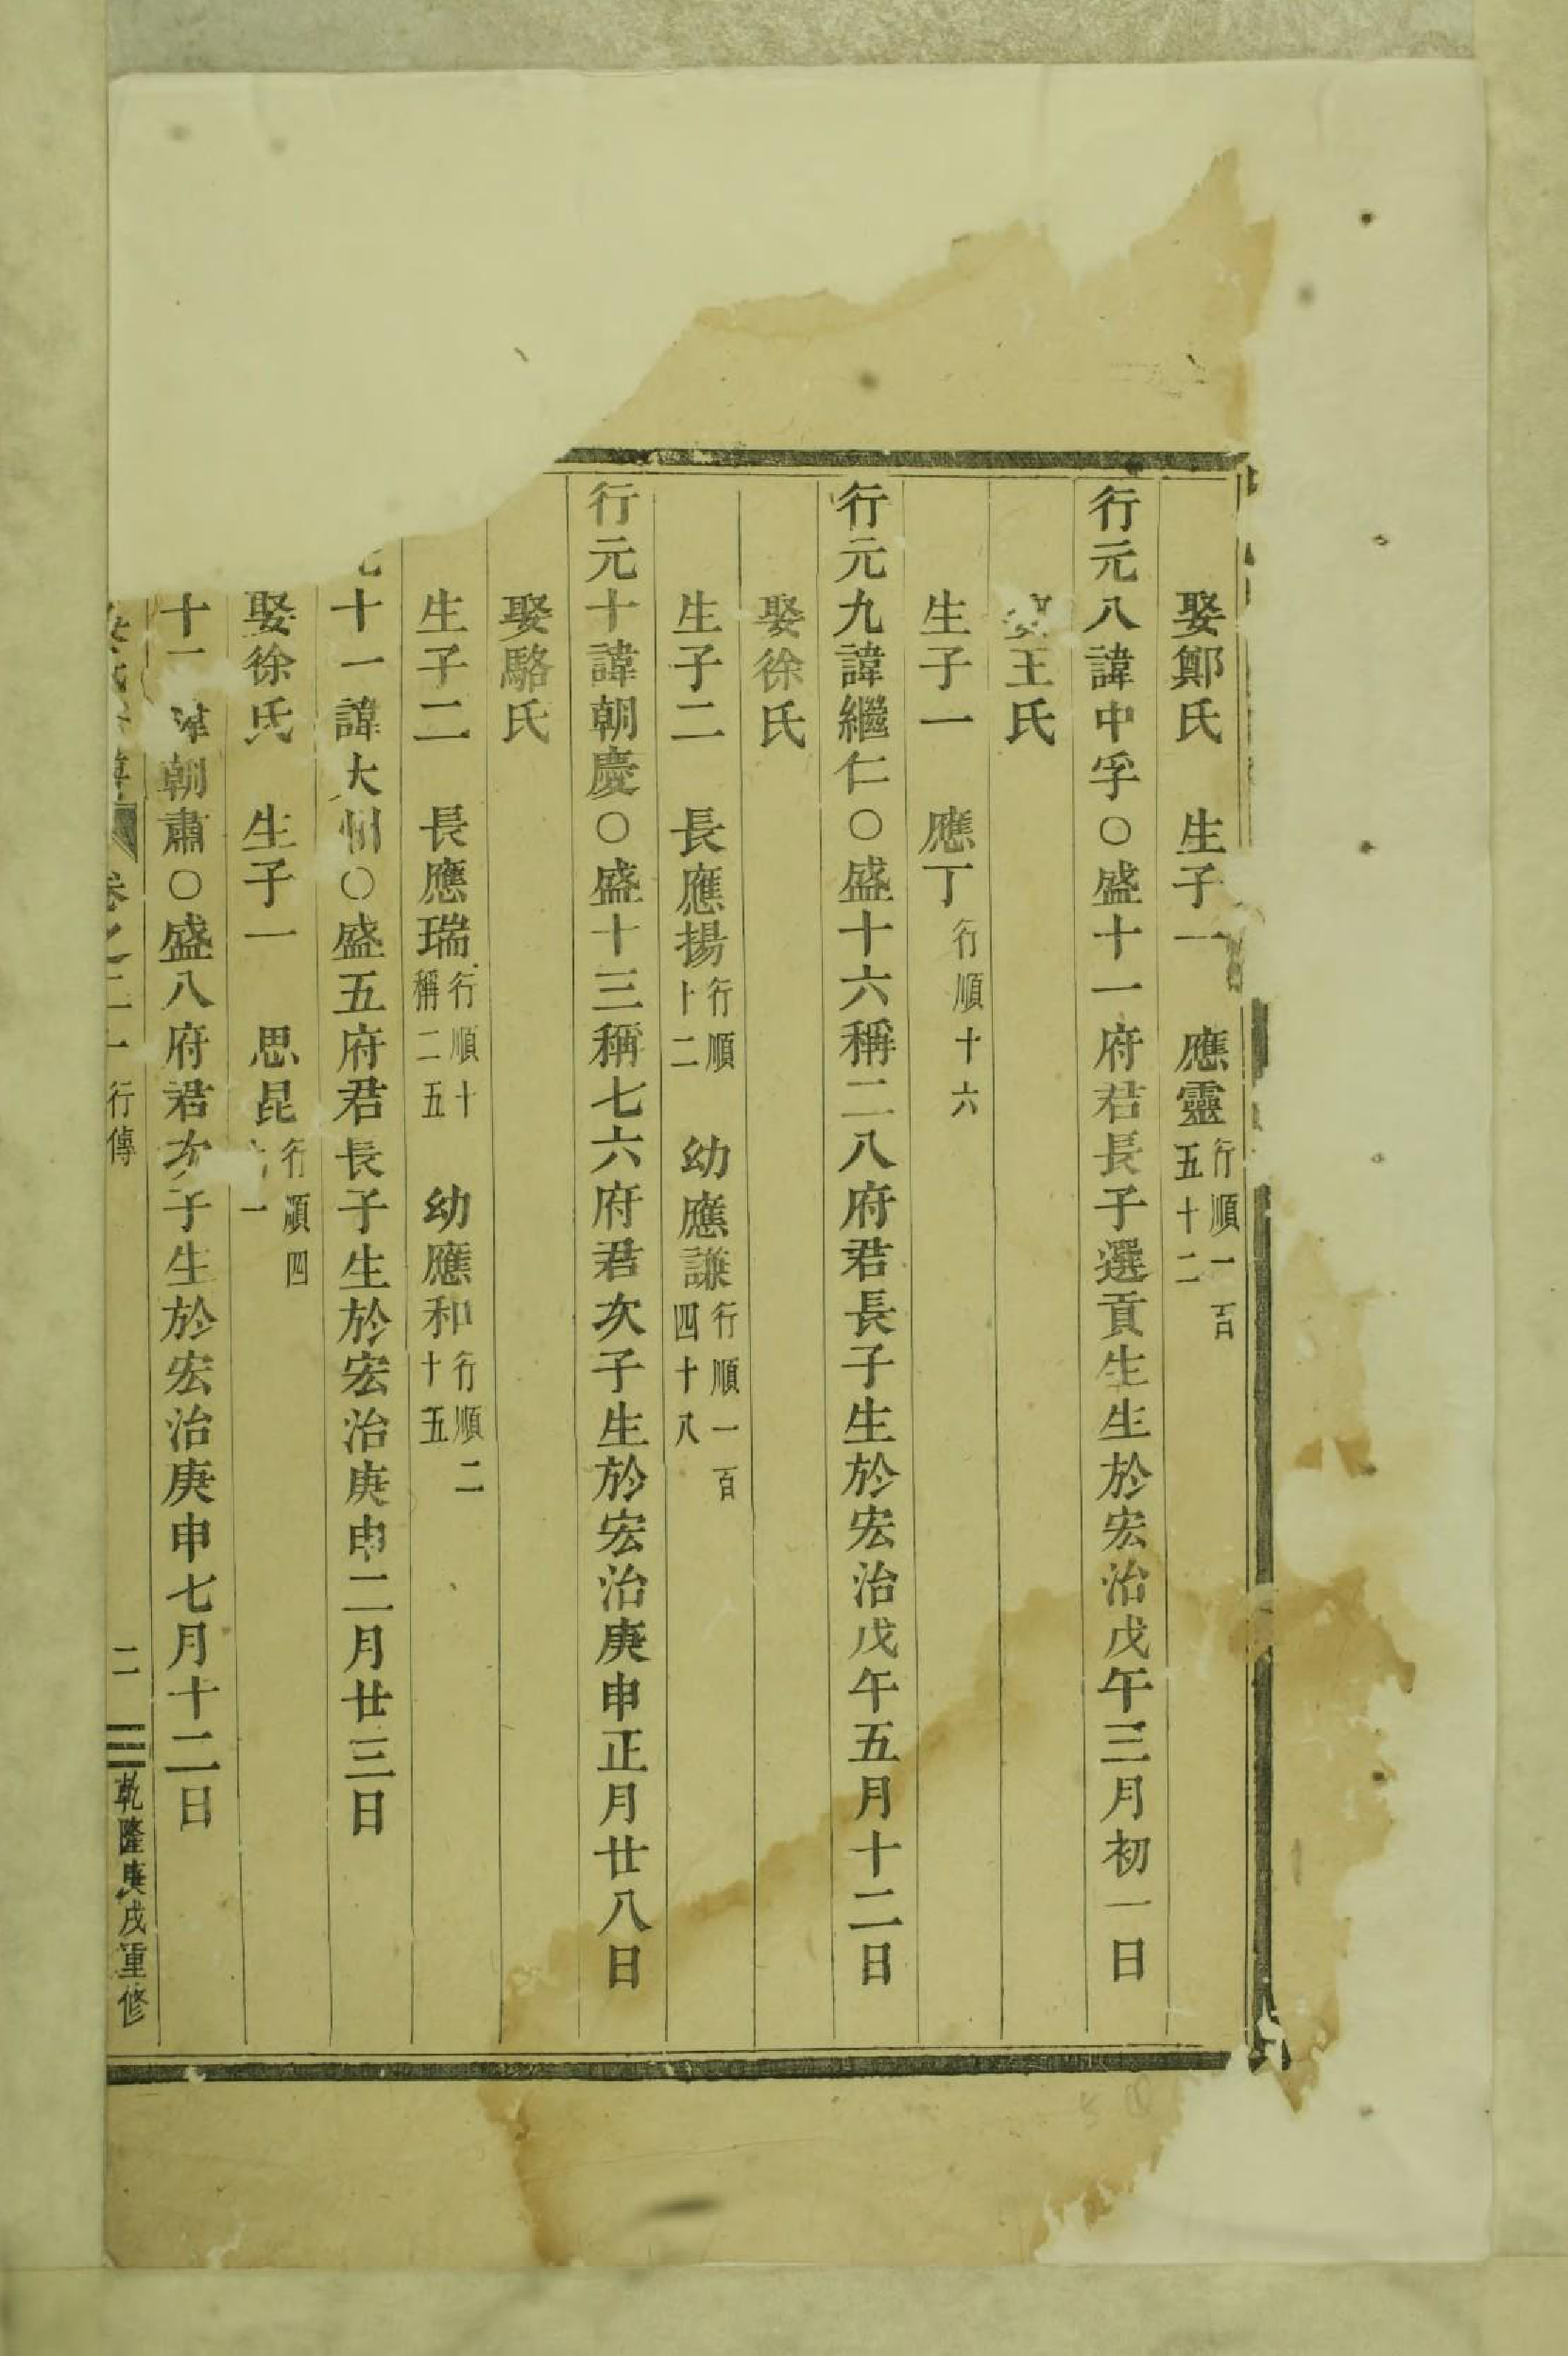 娶鄭氏　生子一　應靈行順一百五十二
行元八諱中孚○盛十一府君長子選貢生生於宏治戊午三月初一日
王氏
生子一　應丁行順十六
行元九諱繼仁○盛十六稱二八府君長子生於宏治戊午五月十二日
娶徐氏
生子二　長應揚行順十二　幼應謙行順一百四十八
行元十諱朝慶○盛十三稱七六府君次子生於宏治庚申正月廿八日
娶駱氏
生子二　長應瑞行順十稱二五　幼應和行順二十五
十一諱大○盛五府君長子生於宏治庚申二月廿三日
娶徐氏　生子一　思昆行順四一
十諱朝肅○盛八府君次子生於宏治庚申七月十二日
卷之二　行傳　二　乾隆庚戌重修